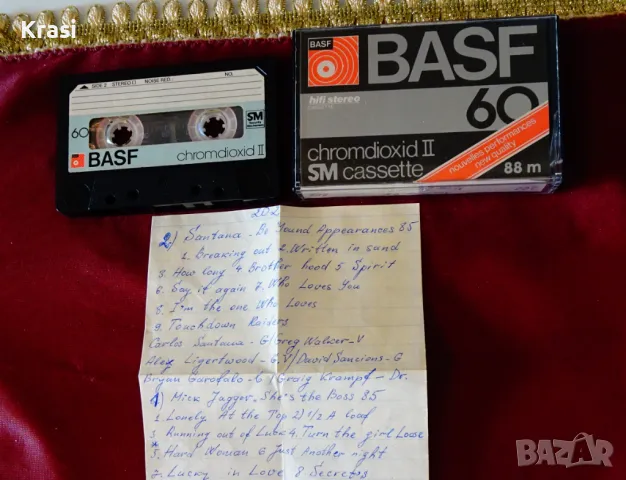 Krasi
SIDE 2 STEREO NOISE RED. NO.
60
BASF
SM
chromdioxid II
BASF
BASF
hifi stereo
60
chromdioxid II
SM cassette
nouvelles performances
new quality
88 m
202
2) Santana - Be Yound Appearances 85
1. Breaking out 2. Written in sand
3. How long 4 Brother hood 5 Spirit
6. Say it again 7. Who Loves You
8. I'm the one Who Loves
9. Touchdown Raiders
Carlos Santana - G/Greg Walker - V
Alex Ligertwood - G.V/David Sancious - G
Bryan Garofalo - G/Graig Krampf - Dr.
1) Mick Jagger - She's the Boss 85
1. Lonely At the Top 2) 1/2 A loaf
3 Running out of Luck 4. Turn the girl Loose
5. Hard Woman 6 Just Another night
7. Lucky in Love 8 Secrets
BAZAR
bg